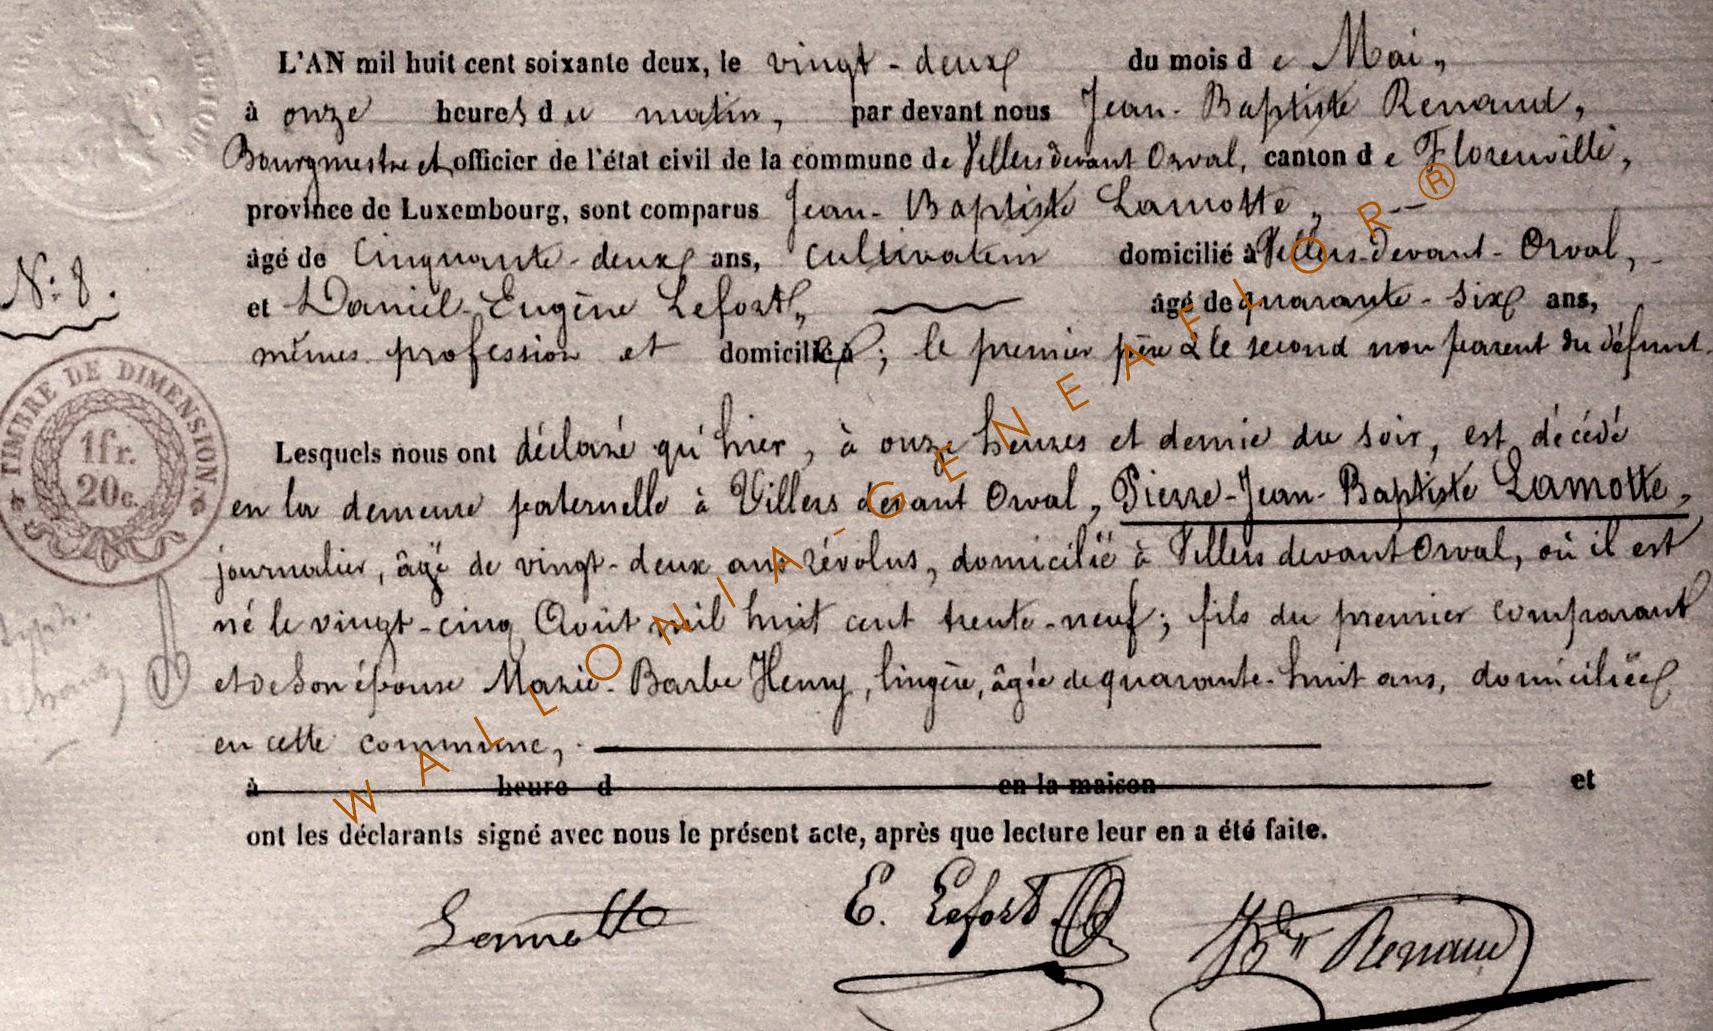 L'AN mil huit cent soixante deux, le vingt-deux du mois de Mai,
à onze heures du matin, par devant nous Jean-Baptiste Renaud,
Bourgmestre et officier de l'état civil de la commune de Villers devant Orval, canton de Florenville,
province de Luxembourg, sont comparus Jean-Baptiste Lamotte,
âgé de Cinquante-deux ans, cultivateur domicilié à Villers-devant-Orval,
N° 8.
et Daniel-Eugène Lefort, âgé de quarante-six ans,
mêmes profession et domicile; le premier père & le second non parent du défunt.
TIMBRE DE DIMENSION
1fr.
20c.
Lesquels nous ont déclaré qu'hier, à onze heures et demie du soir, est décédé
en la demeure paternelle à Villers devant Orval, Pierre-Jean-Baptiste Lamotte,
journalier, âgé de vingt-deux ans révolus, domicilié à Villers devant Orval, où il est
né le vingt-cinq Août mil huit cent trente-neuf; fils du premier comparant
et de son épouse Marie-Barbe Henry, lingère, âgée de quarante-huit ans, domiciliée
en cette commune,
à heure d en la maison et
ont les déclarants signé avec nous le présent acte, après que lecture leur en a été faite.
Lamotte E. Lefort JBte Renaud
WALLONIA-GENEAFLOR--®